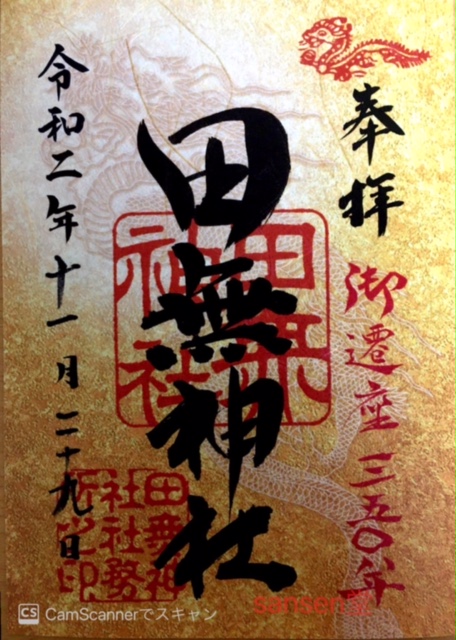 奉拝
御遷座三五〇年
田無神社
田無神社
田無神社社務所之印
令和二年十一月二十九日
CS CamScannerでスキャン